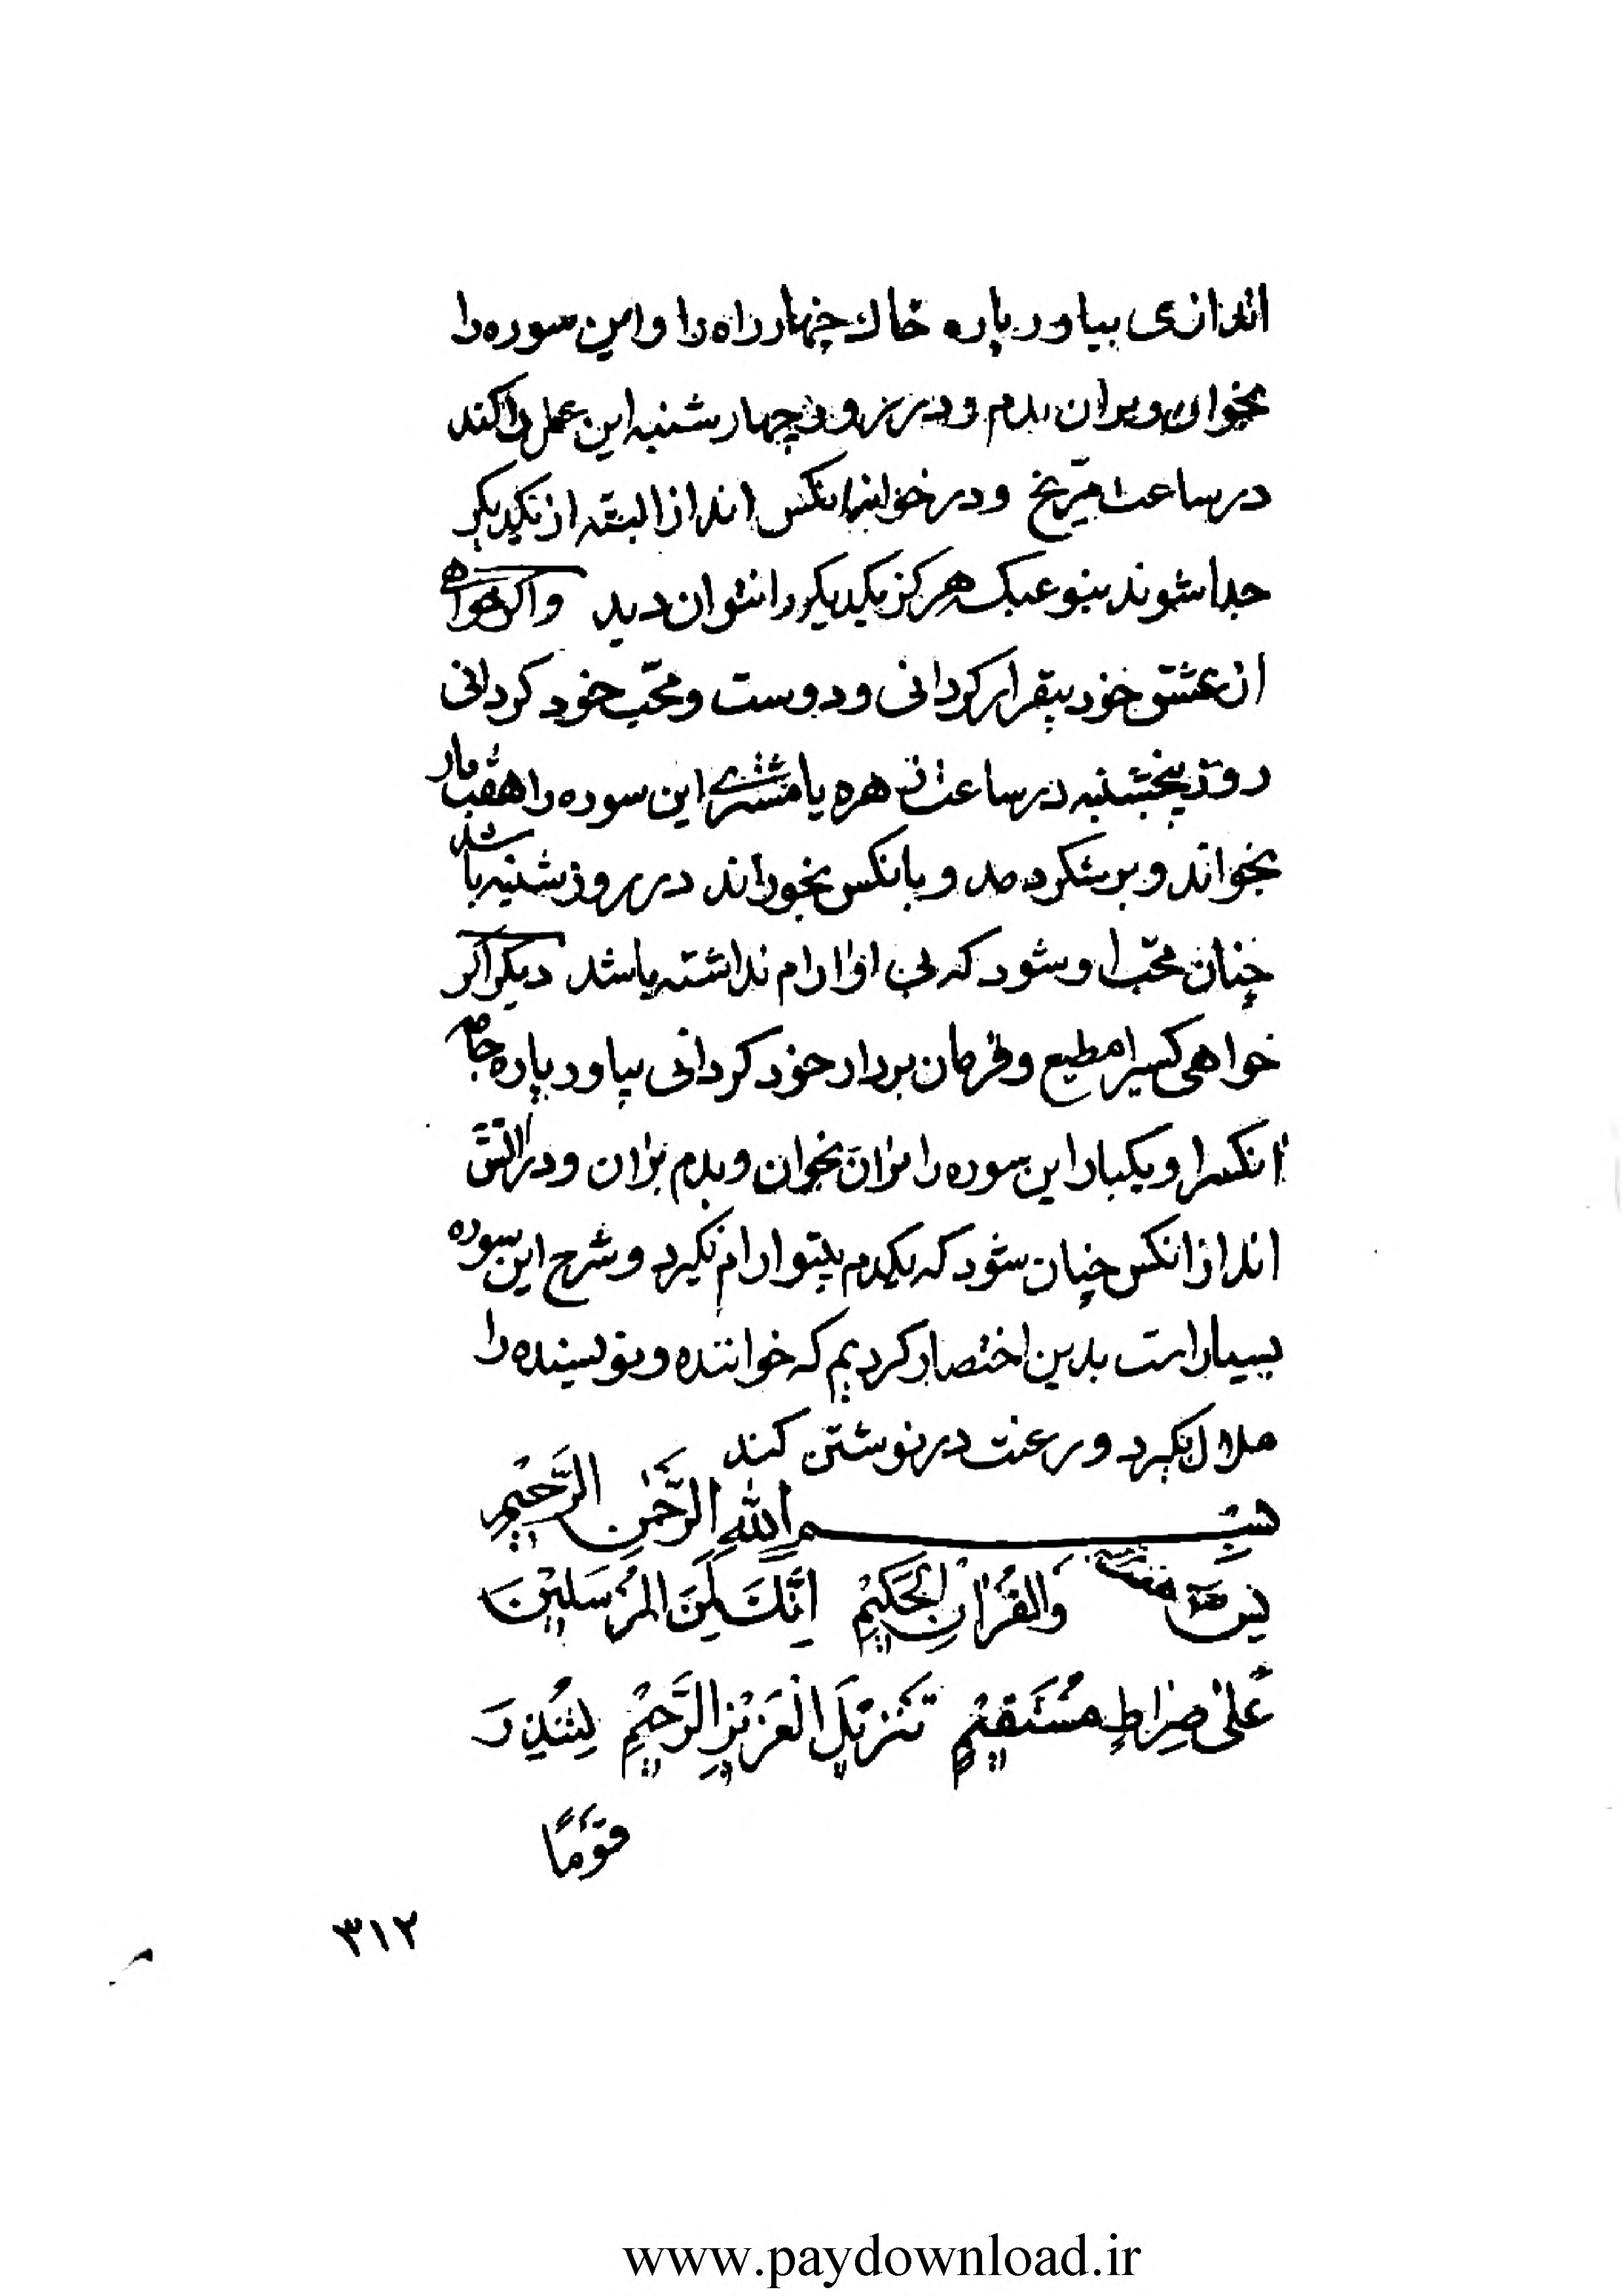 اندازی بیاور پاره خاک چهار راه را و این سوره را
بخوان و بران بدم و در روز چهارشنبه این عمل را کند
در ساعت مرّیخ و در خوابنه انکس انداز البته از یکدیکر
جدا شوند بنوعیکه هرکز یکدیکر را نتوان دید واکر خواهی
از عشق خود بیقرار کردانی و دوست و محبّ خود کردانی
روز پنجشنبه در ساعت زهره یا مشتری این سوره را هفتبار
بخواند و بر شکر دمد و بانکس بخوراند در روز شنبه باشد
چنان محبّ او شود که بی او ارام نداشته باشد دیکر اکر
خواهی کسیرا مطیع و فرمان بردار خود کردانی بیاور پاره جامه
انکسرا و یکبار این سوره را بران بخوان و بدم بران و در اتش
انداز انکس چنان شود که یکدم بیتو ارام نکیرد و شرح این سوره
بسیار است بدین اختصار کردیم که خواننده و نویسنده را
ملال نکیرد و رغبت در نوشتن کند
بِسْمِ اللهِ الرَّحْمٰنِ الرَّحِیْمِ
یٰسٓ وَالقُرْاٰنِ الْحَکِیْمِ اِنَّكَ لَمِنَ الْمُرْسَلِیْنَ
عَلٰی صِرٰاطٍ مُسْتَقِیْمٍ تَنْزِیْلَ الْعَزِیْزِ الرَّحِیْمِ لِتُنْذِرَ
قَوْمًا
۳۱۲
www.paydownload.ir